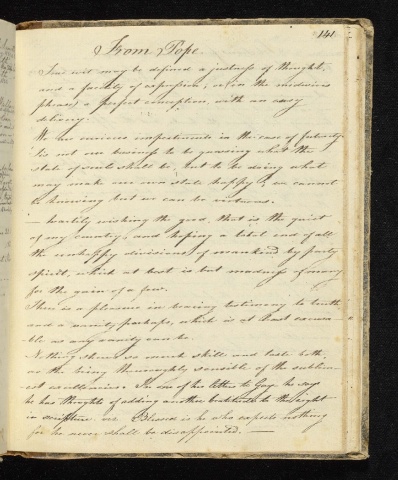 141
From Pope.
True wit may be defined a justness of thought,
and a facility of expression; or (in the midwives
phrase) a perfect conception, with an easy
delivery.
We are curious impertinents in the case of futurity.
'Tis not our business to be guessing what the
state of souls shall be, but to be doing what
may make our own state happy; we cannot
be knowing but we can be virtuous.
— heartily wishing the good, that is the quiet
of my country; and hoping a total end of all
the unhappy divisions of mankind by party
spirit, which at best is but madness of many
for the gain of a few.
There is a pleasure in bearing testimony to truth
and a vanity perhaps, which is at least excusa-
ble as any vanity can be.
Nothing shews so much skill and taste both,
as the being thoroughly sensible of the sublim-
est excellencies. In one of his letters to Gay he says
he has thoughts of adding another beatitude to the eight
in scripture viz Blessed is he who expects nothing
for he never shall be disappointed. —